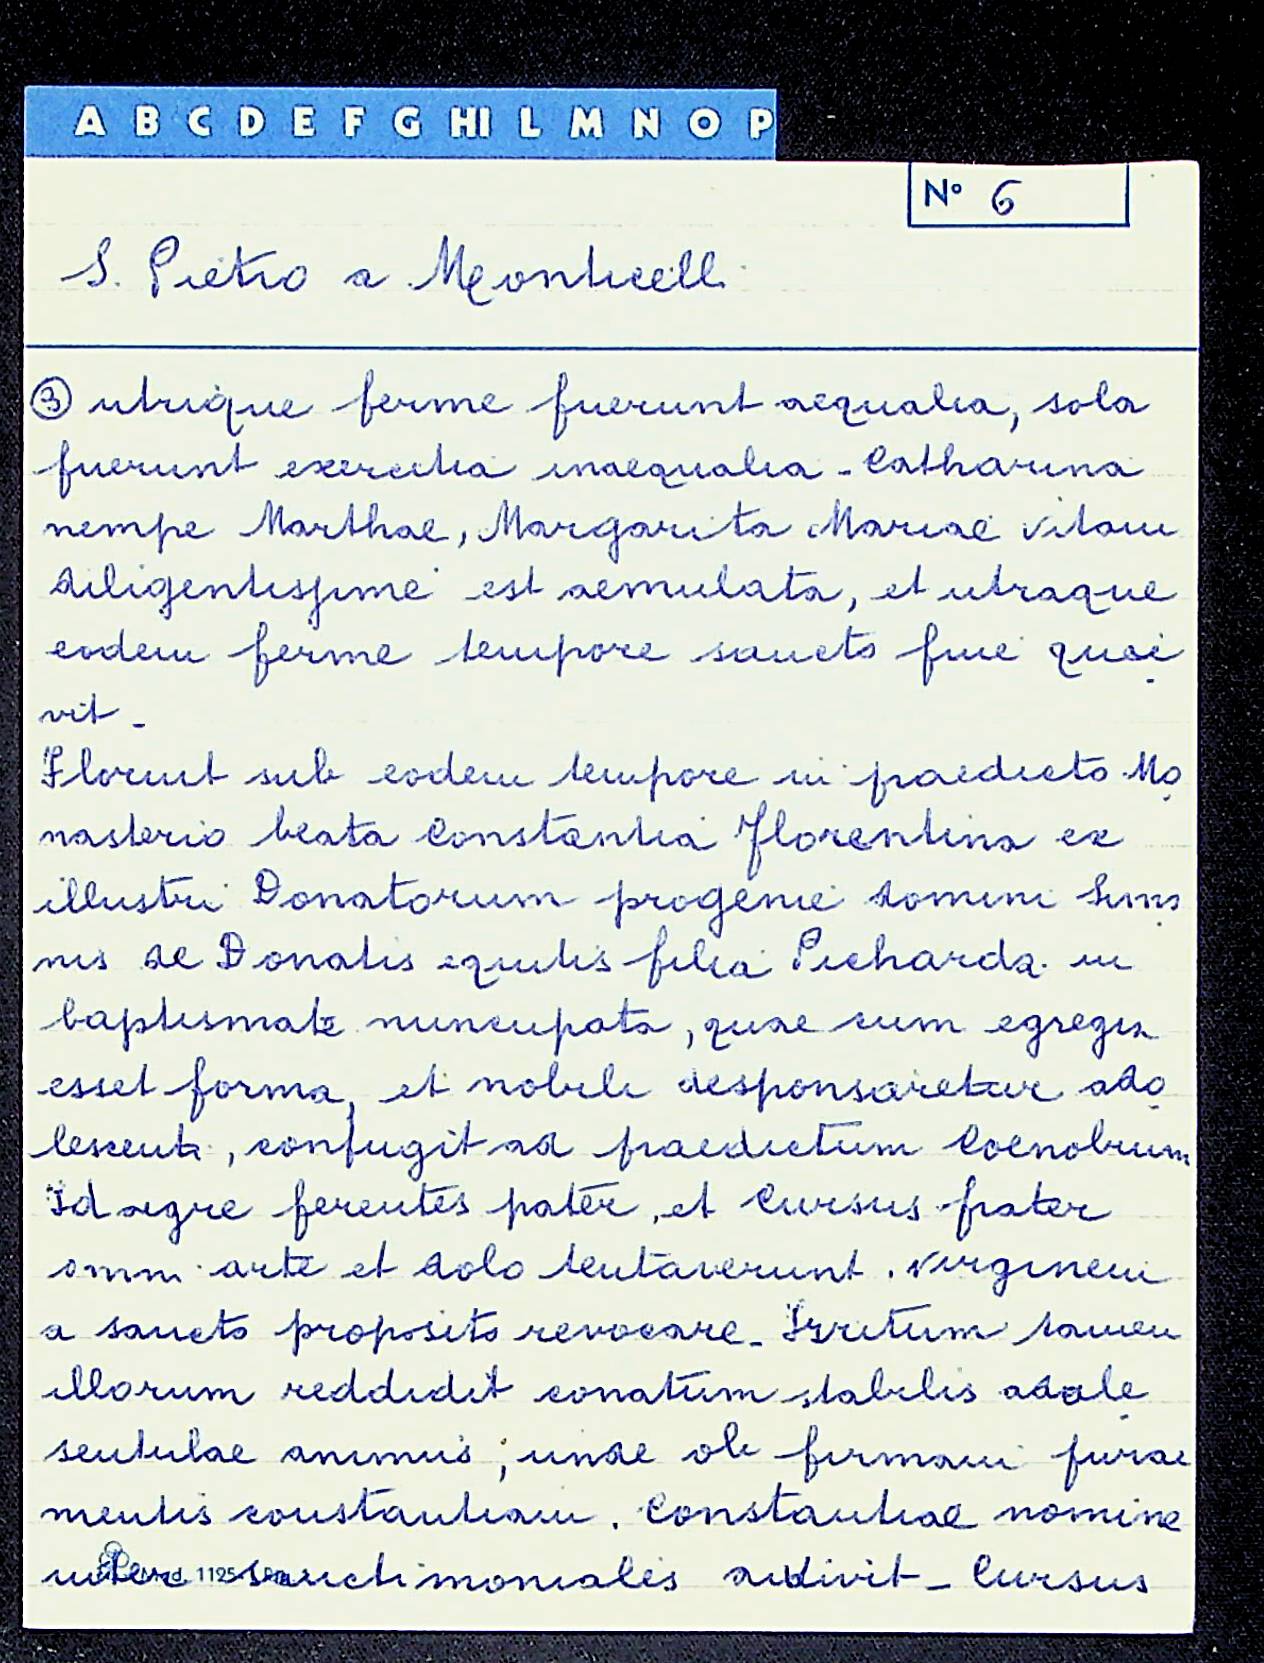 A B C D E F G HI L M N O P
Nº 6
S. Pietro a Monticelli
③ utrique ferme fuerunt aequalia, sola
fuerunt exercitia inaequalia - Catharina
nempe Marthae, Margarita Mariae vitam
diligentissime est aemulata, et utraque
eodem ferme tempore sancto fine quie
vit -
Floruit sub eodem tempore in praedicto Mo
nasterio beata Constantia Florentina ex
illustri Donatorum progenie domini Simo
nis de Donatis equitis filia Picharda in
baptismate nuncupata, quae cum egregia
esset forma, et nobili desponsaretur ado
lescenti, confugit ad praedictum Coenobium
Id aegre ferentes pater, et Cursus frater
omni arte et dolo tentaverunt virginem
a sancto proposito revocare - Irritum tamen
illorum reddidit conatum stabilis adole
sentulae animus; unde ob firmam furae
mentis constantiam. Constantiae nomine
inter sanctimoniales audivit - Cursus
Mod. 1125